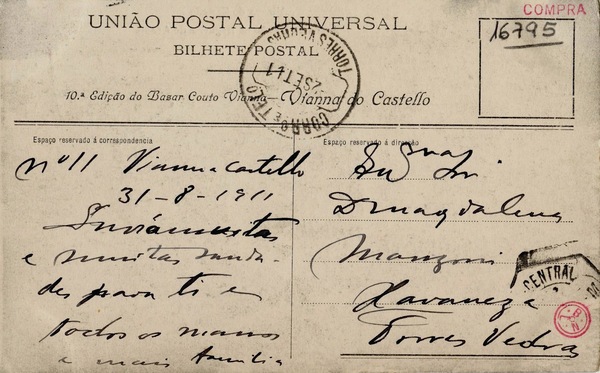 COMPRA
UNIÃO POSTAL UNIVERSAL
BILHETE POSTAL
16795
TORRES VEDRAS
2 SET 11
CORRO E TELO
10.ª Edição do Bazar Couto Vianna—Vianna do Castello
Espaço reservado á correspondencia
nº 11 Vianna castello
31-8-1911
e muitas sauda-
des para ti e
todos os manos
e mais familia
Espaço reservado á direcção
D Magdalena
Manzoni
Havaneza
Torres Vedras
CENTRAL